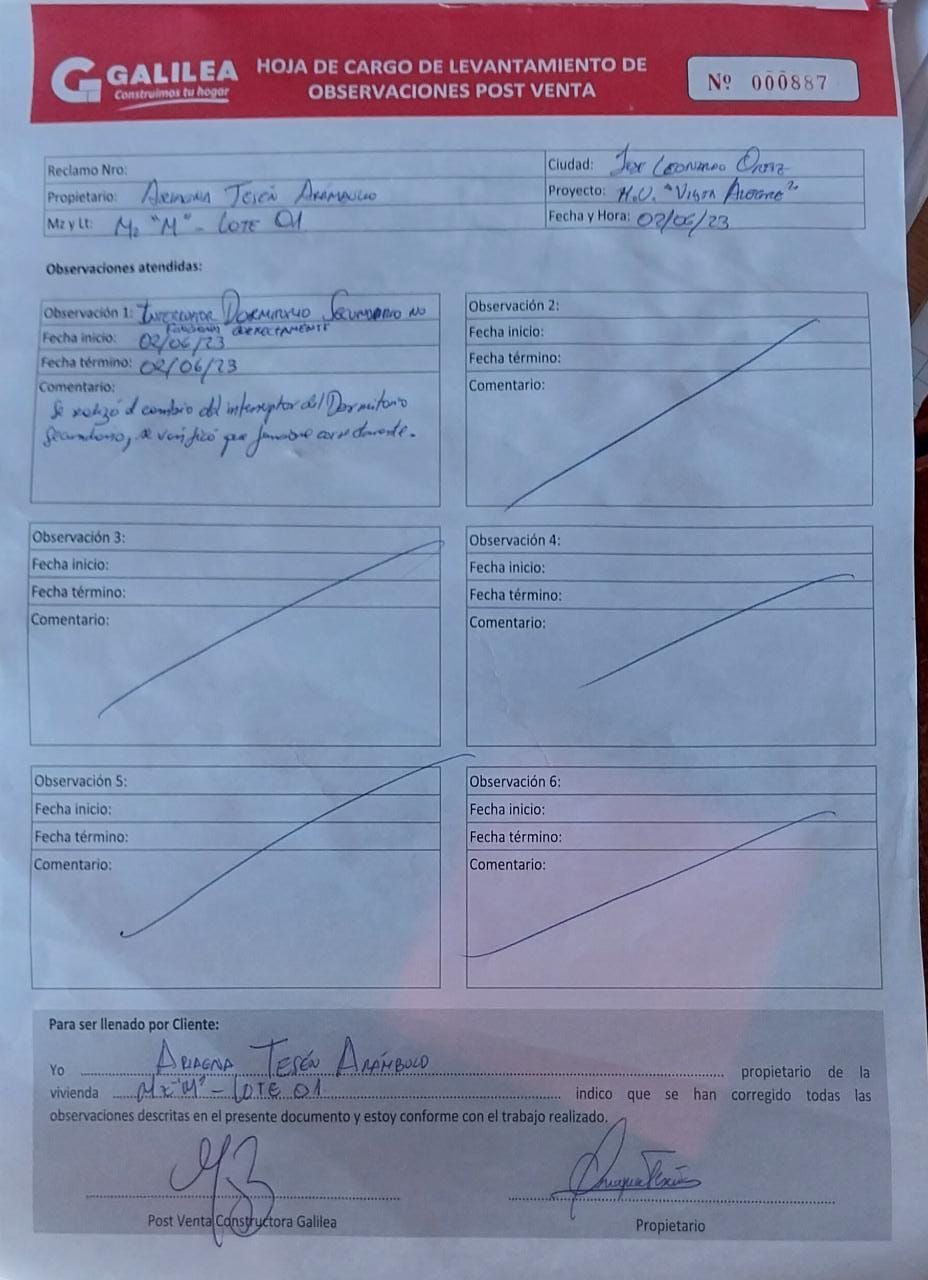 GALILEA
Construimos tu hogar
HOJA DE CARGO DE LEVANTAMIENTO DE
OBSERVACIONES POST VENTA
Nº 000887
Reclamo Nro:
Ciudad: Jose Leonardo Ortiz
Propietario: Ariagna Tesén Arámbulo
Proyecto: H.U. "Vista Alegre"
Mz y Lt: Mz "M" - Lote 01
Fecha y Hora: 02/06/23
Observaciones atendidas:
Observación 1: Interruptor Dormitorio Secundario no
funciona correctamente
Fecha inicio: 02/06/23
Fecha término: 02/06/23
Comentario:
Se realizó el cambio del interruptor del Dormitorio
Secundario, se verificó que funcione correctamente.
Observación 2:
Fecha inicio:
Fecha término:
Comentario:
Observación 3:
Fecha inicio:
Fecha término:
Comentario:
Observación 4:
Fecha inicio:
Fecha término:
Comentario:
Observación 5:
Fecha inicio:
Fecha término:
Comentario:
Observación 6:
Fecha inicio:
Fecha término:
Comentario:
Para ser llenado por Cliente:
Yo Ariagna Tesén Arámbulo propietario de la
vivienda Mz "M" - Lote 01 indico que se han corregido todas las
observaciones descritas en el presente documento y estoy conforme con el trabajo realizado.
Post Venta Constructora Galilea
Propietario